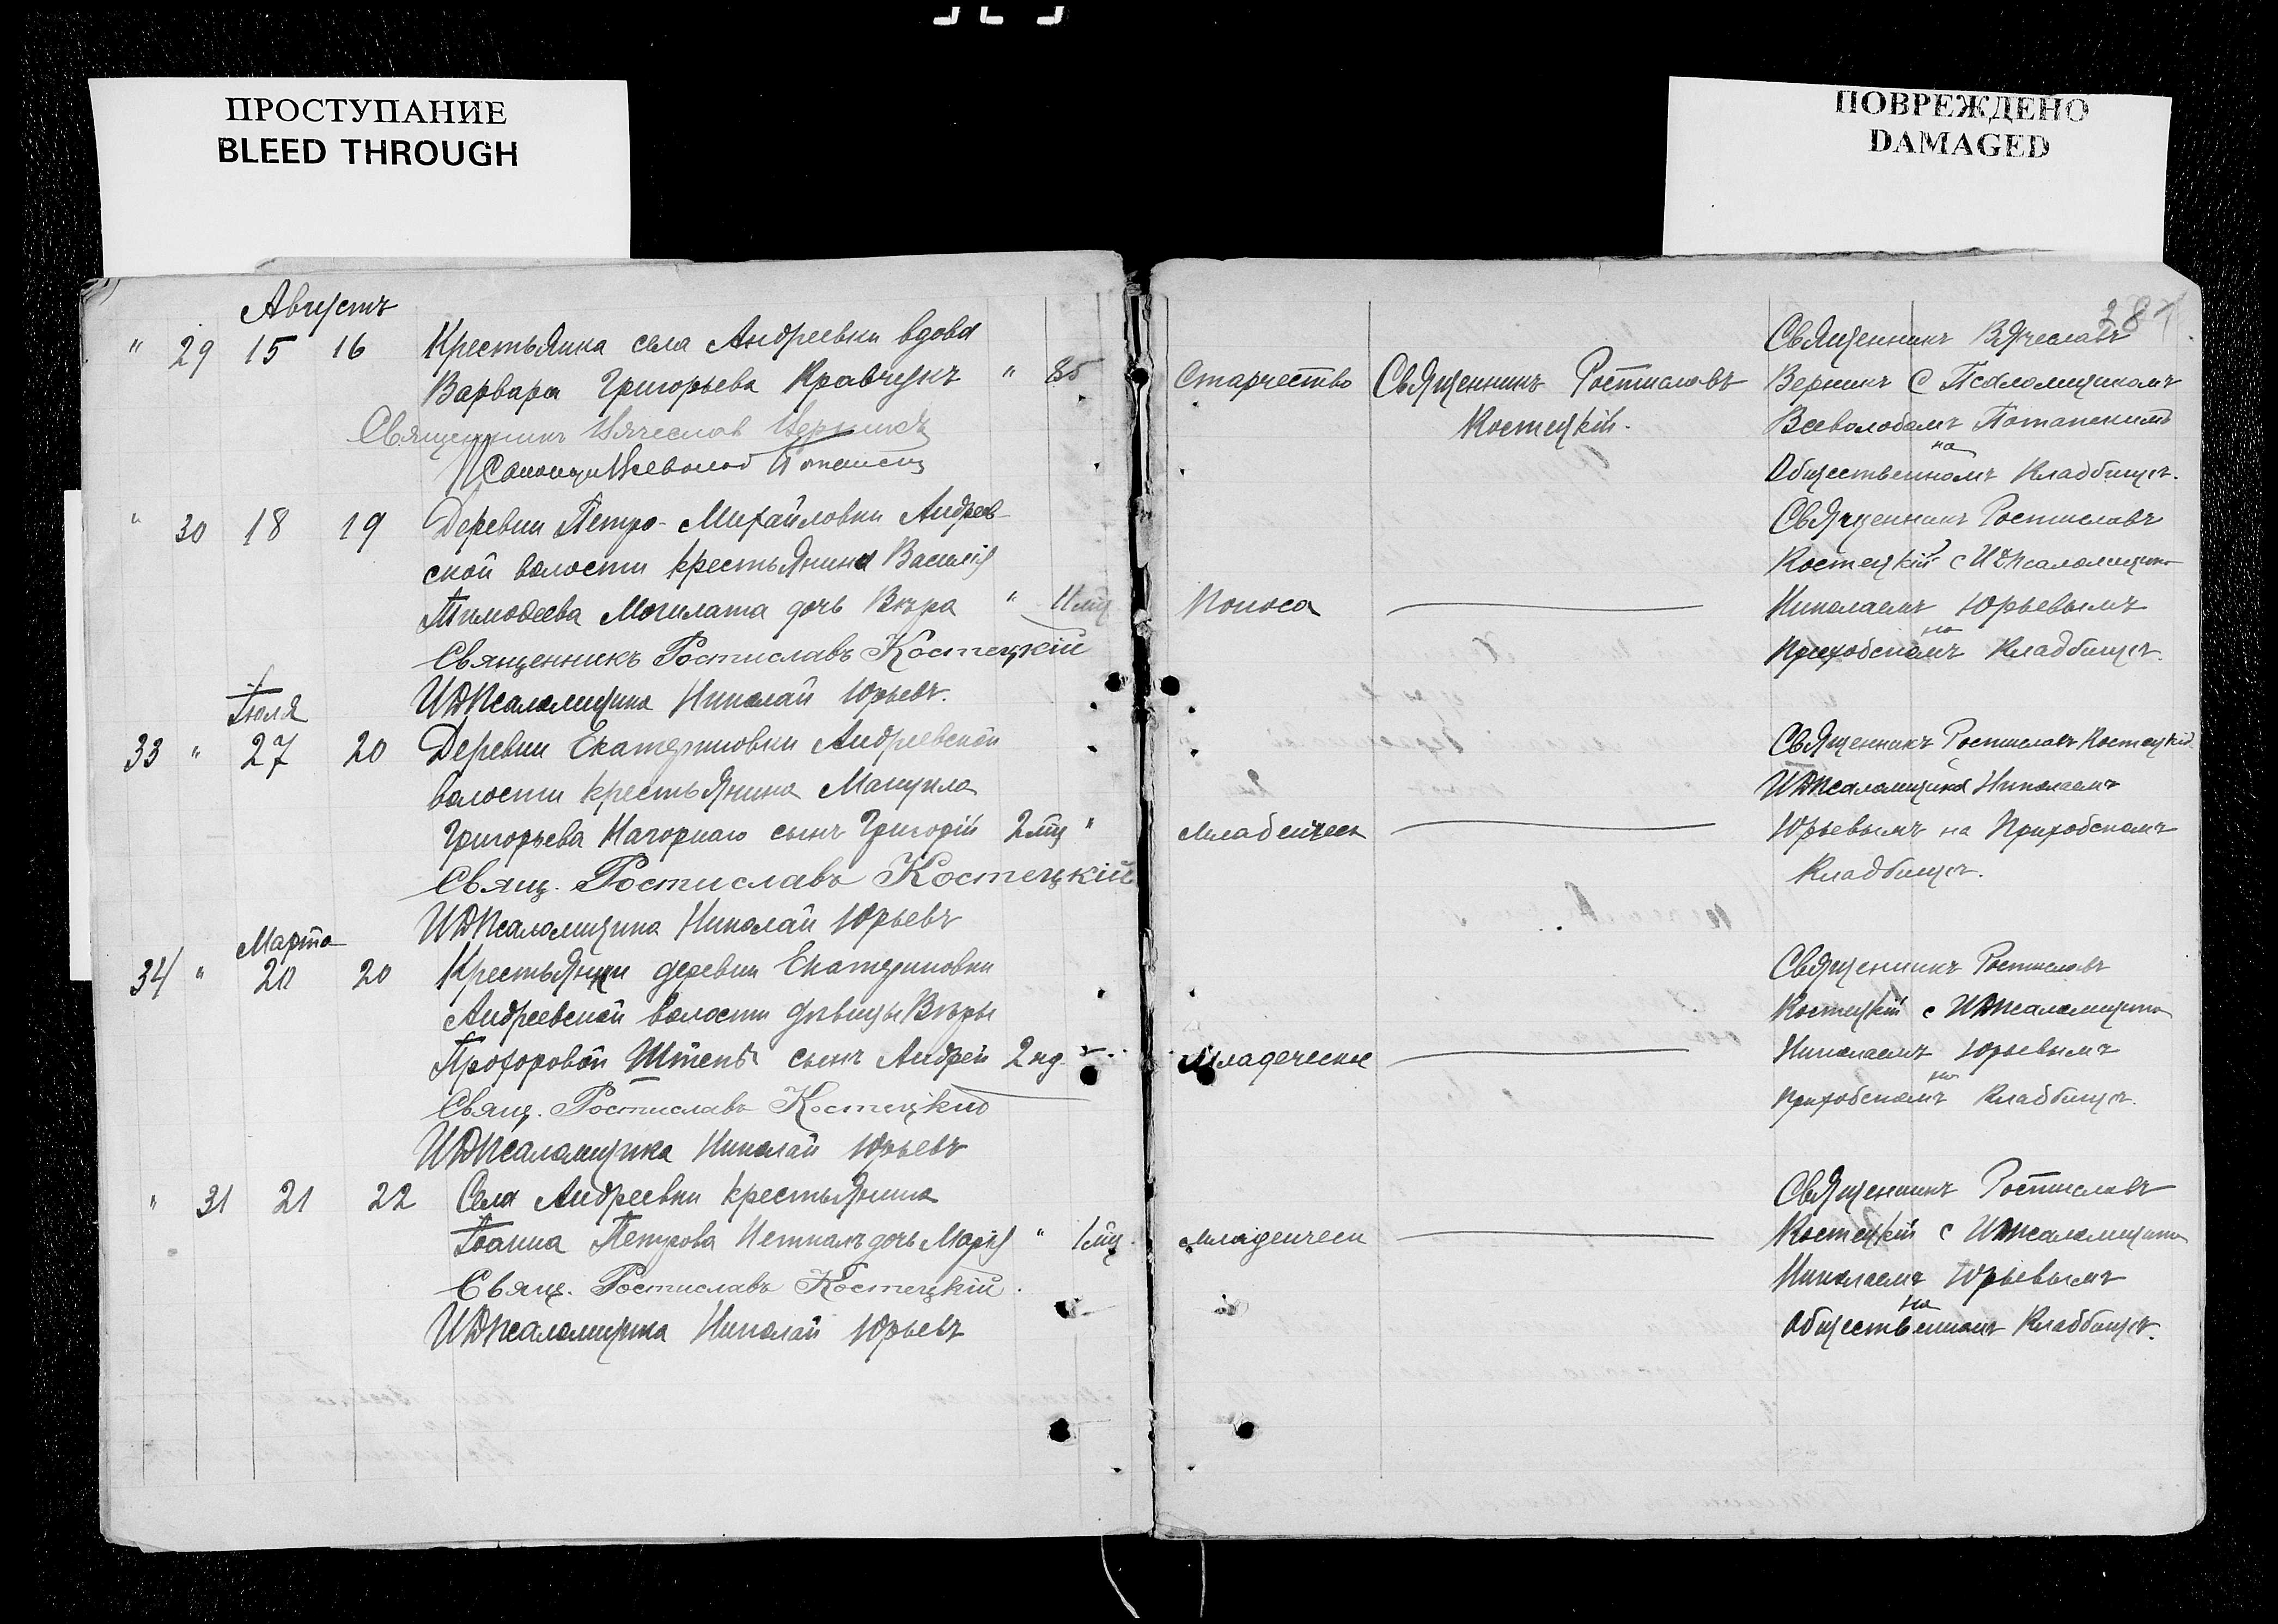 ПРОСТУПАНИЕ
BLEED THROUGH
ПОВРЕЖДЕНО
DAMAGED
Августъ
" 29 15 16 Крестьянка села Андреевки вдова
Варвара Григорьева Кравчукъ " 85
Священникъ Вячеслав Верникъ
Всеволод
" 30 18 19 Деревни Петро-Михайловки Андреев-
ской волости крестьянина Василія
Тимофеева Могилата дочь Вѣра " 11 мц
Священникъ Ростиславъ Костецкій
ИД Псаломщика Николай Юрьевъ.
Іюля
33 " 27 20 Деревни Екатериновки Андреевской
волости крестьянина Мануила
Григорьева Нагорнаго сынъ Григорій 2 мц "
Свящ. Ростиславъ Костецкій
ИД Псаломщика Николай Юрьевъ
Марта
34 " 20 20 Крестьянки деревни Екатериновки
Андреевской волости дѣвицы Вѣры
Прохоровой Штепы сынъ Андрей 2 нд.
Свящ. Ростиславъ Костецкій
ИД Псаломщика Николай Юрьевъ
" 31 21 22 Села Андреевки крестьянина
Іоанна Петрова дочь Марія " 1 мц.
Свящ. Ростиславъ Костецкій.
ИД Псаломщика Николай Юрьевъ
Священникъ Вячеславъ
Старчество Священникъ Ростиславъ Верникъ с Псаломщикомъ
Костецкій. Всеволодомъ Потапскимъ
на
Общественномъ Кладбищѣ.
Священникъ Ростиславъ
Костецкій с ИД Псаломщика
Поноса Николаемъ Юрьевымъ
на
Приходскомъ Кладбищѣ.
Священникъ Ростиславъ Костецкій
с
ИД Псаломщика Николаемъ
младенческ Юрьевымъ на Приходскомъ
Кладбищѣ.
Священникъ Ростиславъ
Костецкій с ИД Псаломщика
младеческ Николаемъ Юрьевымъ
на
приходскомъ Кладбищѣ.
Священникъ Ростиславъ
младенческ Костецкій с ИД Псаломщика
Николаемъ Юрьевымъ
на
Общественномъ Кладбищѣ.